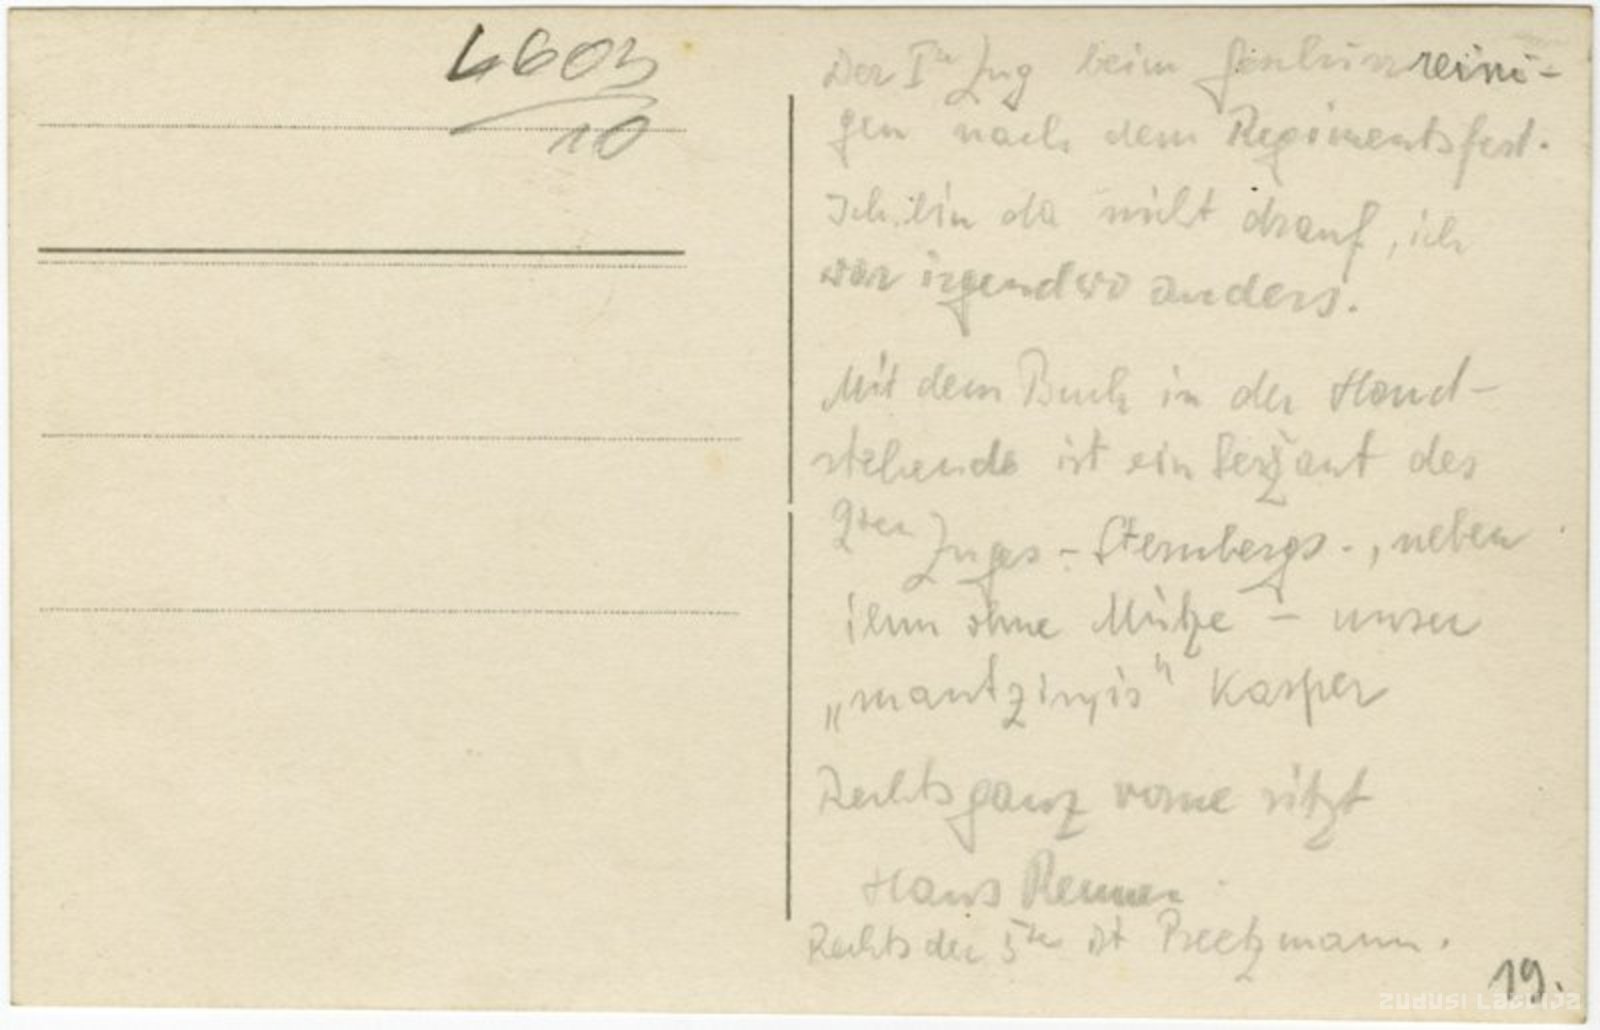 4603
10
Der Ite Zug beim Geschirrreini-
gen nach dem Regimentsfest.
Ich bin da nicht drauf, ich
war irgendwo anders.
Mit dem Buch in der Hand-
stehende ist ein Seržant des
2ten Zuges - Sternbergs -, neben
ihm ohne Mütze - unser
„mantziņis" Kasper
Rechts ganz vorne sitzt
Hans Renner.
Rechts der 5te ist Preetzmann.
19.
zudusi Latvija